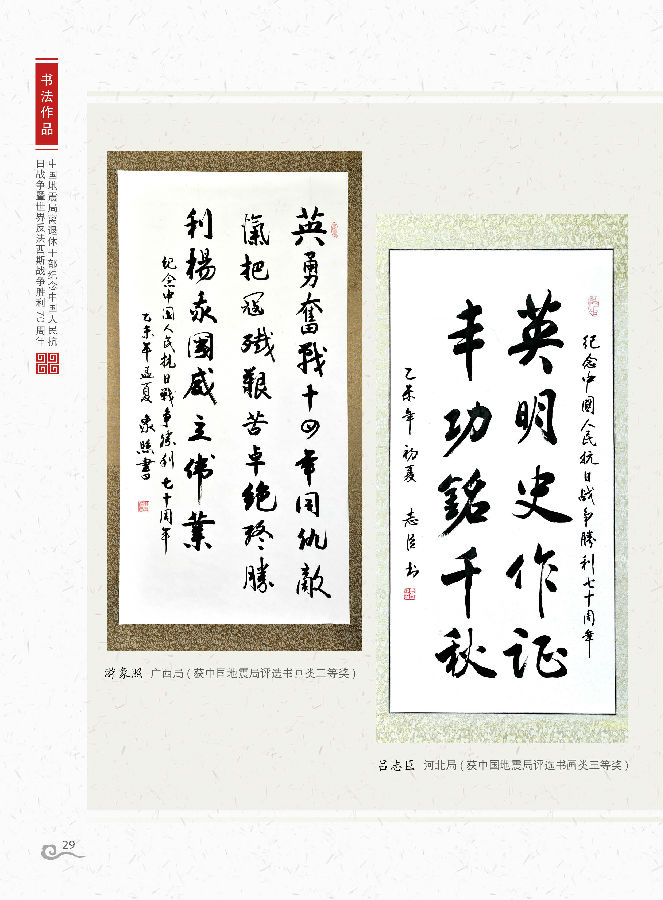 书法作品
中国地震局离退休干部纪念中国人民抗
日战争暨世界反法西斯战争胜利70周年
英勇奮戰十四年同仇敵
氣把冦殲艱苦卓絶終勝
利楊我國威立偉業
纪念中國人民抗日戰争勝利七十周年
乙未年孟夏 象照書
纪念中國人民抗日战争勝利七十周年
英明史作证
丰功銘千秋
乙未年初夏 志臣书
游象照 广西局(获中国地震局评选书画类三等奖)
吕志臣 河北局(获中国地震局评选书画类三等奖)
29